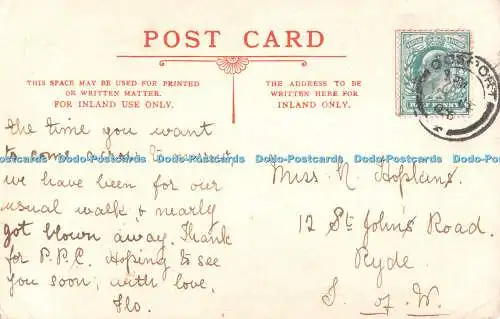 POST CARD
THIS SPACE MAY BE USED FOR PRINTED
OR WRITTEN MATTER.
FOR INLAND USE ONLY.
THE ADDRESS TO BE
WRITTEN HERE FOR
INLAND ONLY.
HALFPENNY
GOSPORT
the time you want
to come across to
we have been for our
usual walk, & nearly
got blown away. Thank
for P.P.C. Hoping to see
you soon, with love,
Flo.
Miss N. Hopkins.
12 St Johns Road.
Ryde
I. of. W.
Dodo-Postcards Dodo-Postcards Dodo-Postcards Dodo-Postcards Dodo-Postcards